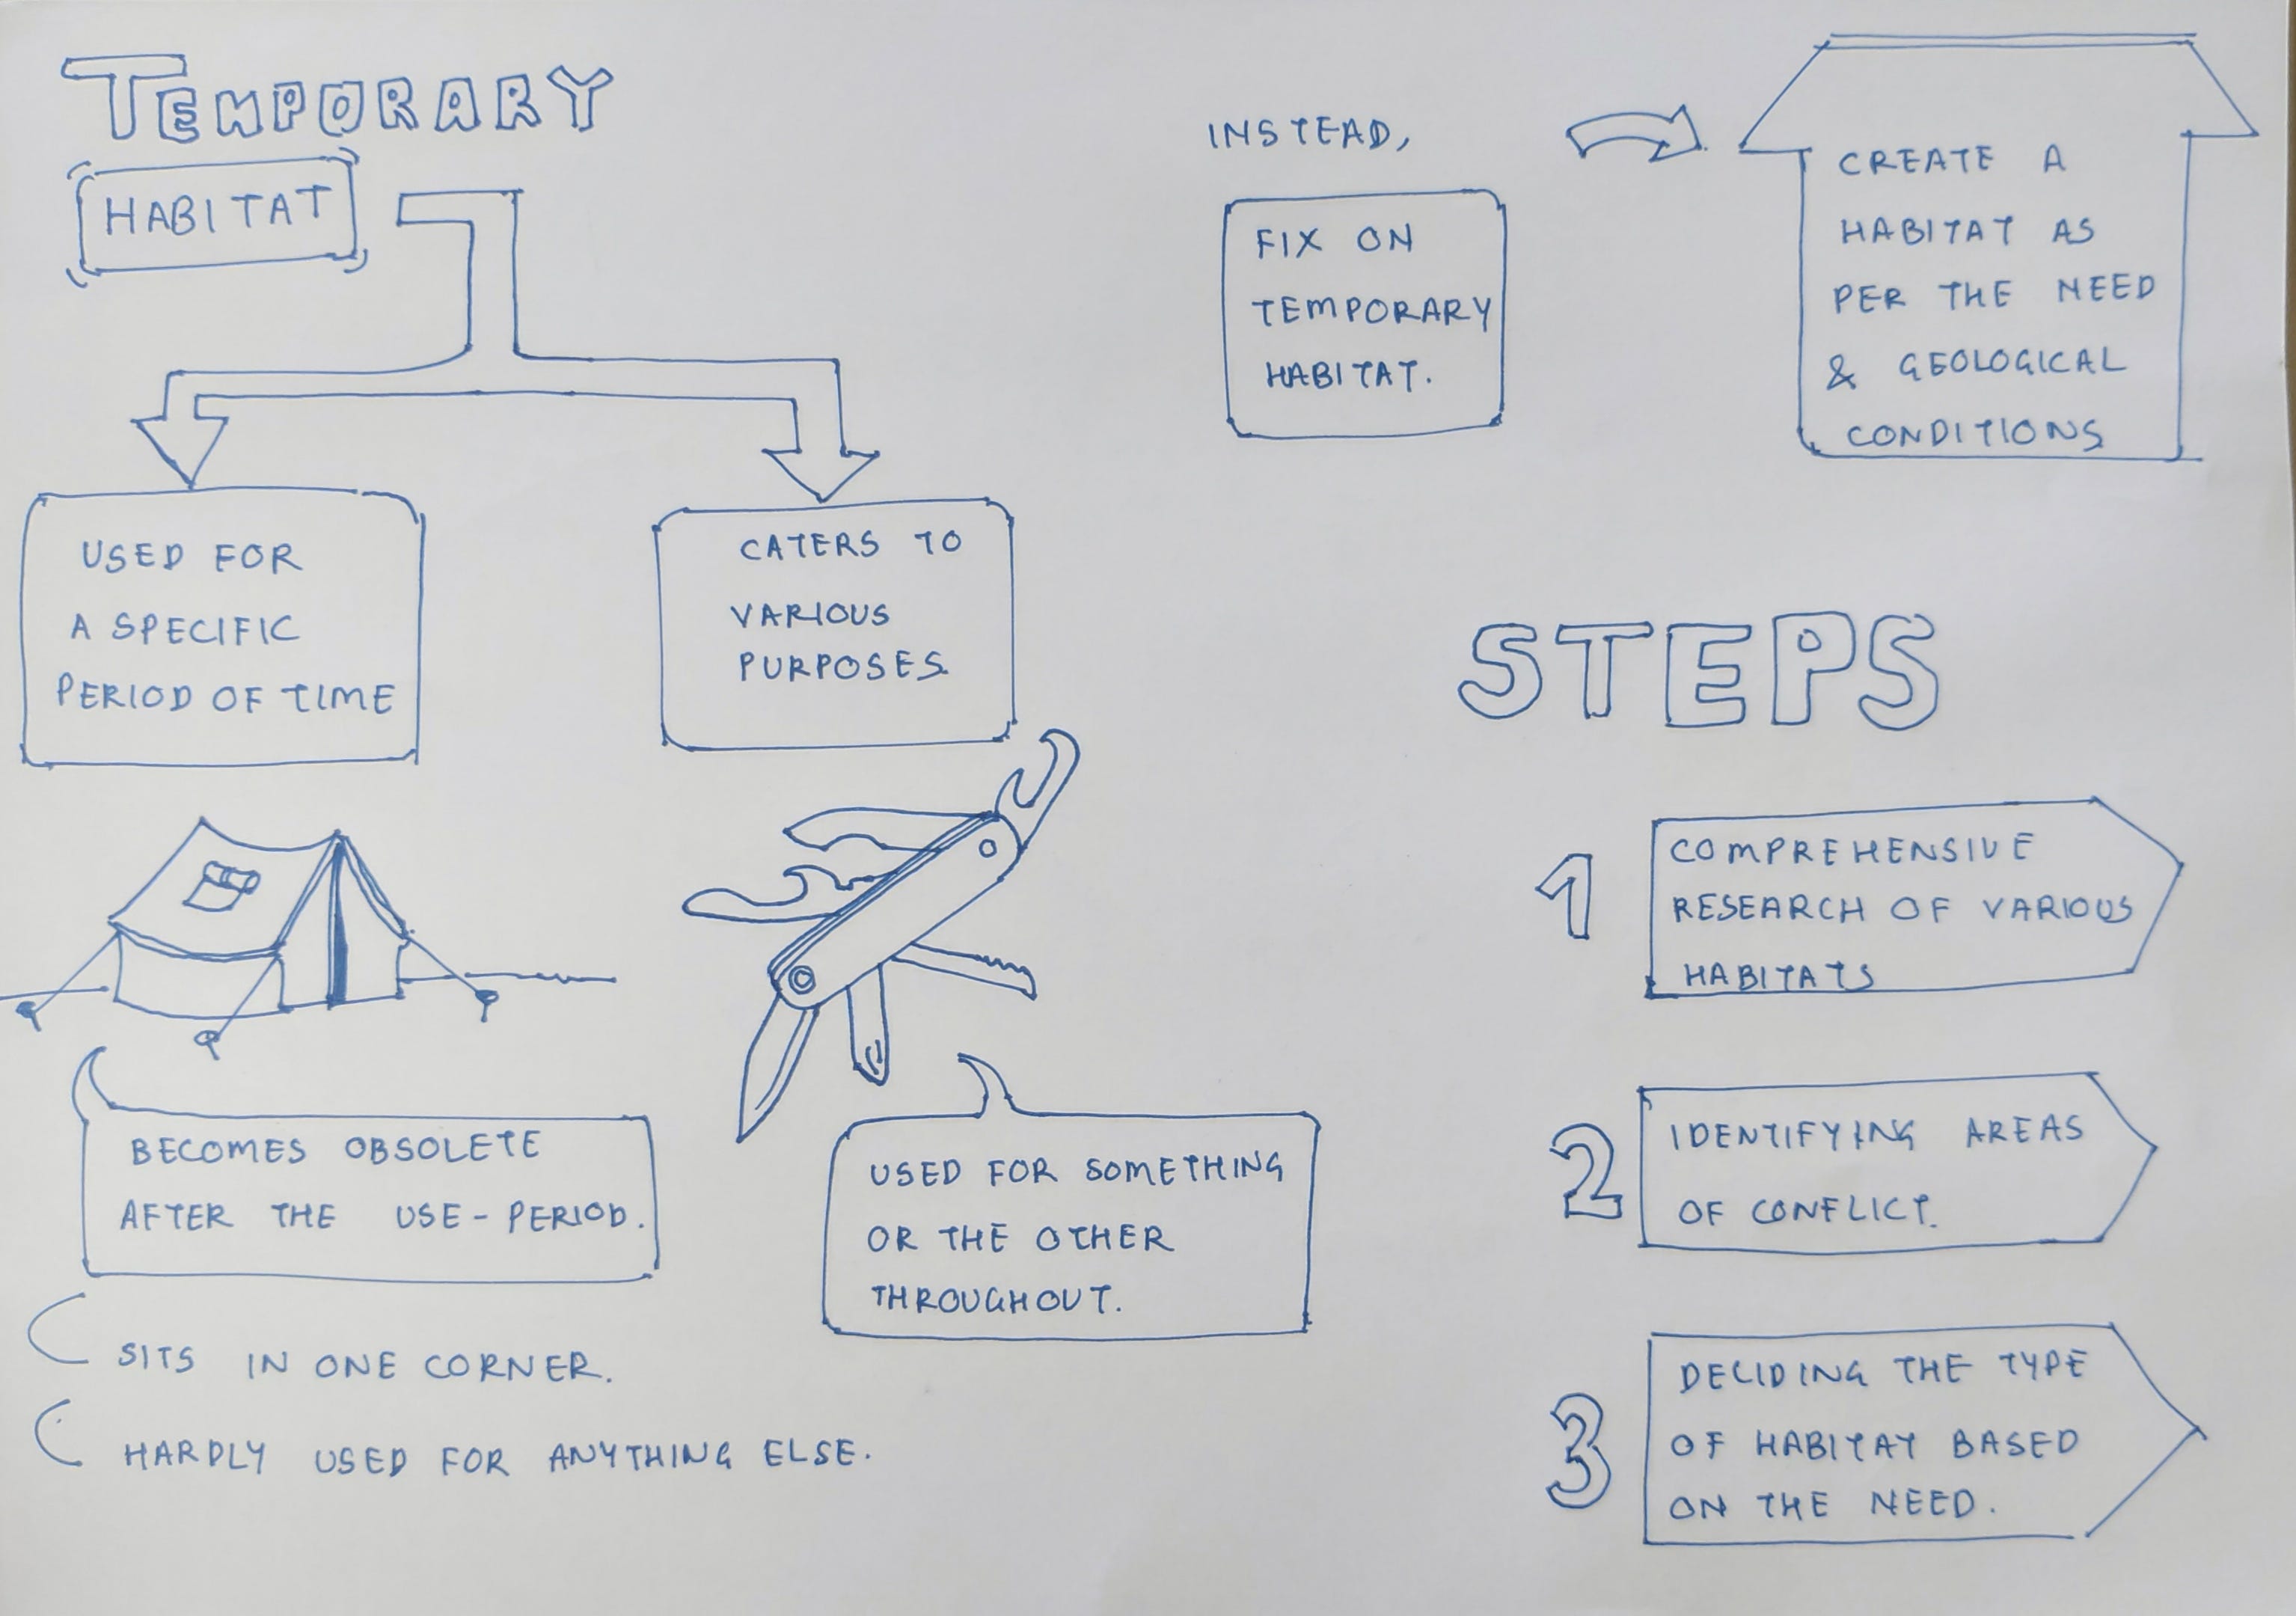 TEMPORARY
HABITAT
USED FOR
A SPECIFIC
PERIOD OF TIME
CATERS TO
VARIOUS
PURPOSES.
BECOMES OBSOLETE
AFTER THE USE-PERIOD.
SITS IN ONE CORNER.
HARDLY USED FOR ANYTHING ELSE.
USED FOR SOMETHING
OR THE OTHER
THROUGHOUT.
INSTEAD,
FIX ON
TEMPORARY
HABITAT.
CREATE A
HABITAT AS
PER THE NEED
& GEOLOGICAL
CONDITIONS
STEPS
1
COMPREHENSIVE
RESEARCH OF VARIOUS
HABITATS
2
IDENTIFYING AREAS
OF CONFLICT.
3
DECIDING THE TYPE
OF HABITAT BASED
ON THE NEED.